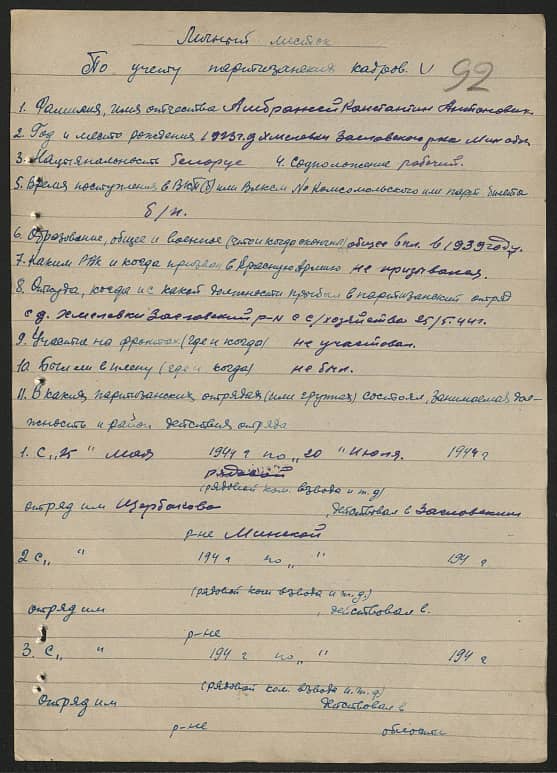 Личный листок
По учету партизанских кадров. V 92
1. Фамилия, имя отчество Амбражей Константин Антонович
2. Год и место рождения 1923 г. д. Хмелевка Заславского р-на Мин обл.
3. Нацыянальность белорус 4. Соцположение рабочий.
5. Время поступления в ВКП(б) или Влксм № Комсомольского или парт. билета
б/п.
6. Образование, общее и военное (что и когда окончил) общее 6 кл. в 1939 году.
7. Каким РВК и когда призван в Красную Армию не призывался.
8. Откуда, когда и с какой должности прибыл в партизанский отряд
с д. Хмелевки Заславский р-н с с/хозяйства 25/5.44 г.
9. Участие на фронтах (где и когда) не участвовал.
10. Был ли в плену (где и когда) не был.
11. В каких партизанских отрядах (или группах) состоял, занимаемая дол-
жность и район действия отряда
1. С „25 " мая 1944 г по „ 20 " Июля. 1944 г
рядовой
(рядовой ком. взвода и т.д)
отряд им Щербакова , действовал в Заславским
р-не Минской
2 с „ " 194 г по „ " 194 г
(рядовой ком взвода и т.д.)
отряд им , действовал в.
р-не
3. С „ " 194 г по „ " 194 г
(рядовой ком. взвода и т.д)
отряд им действовал в
р-не области